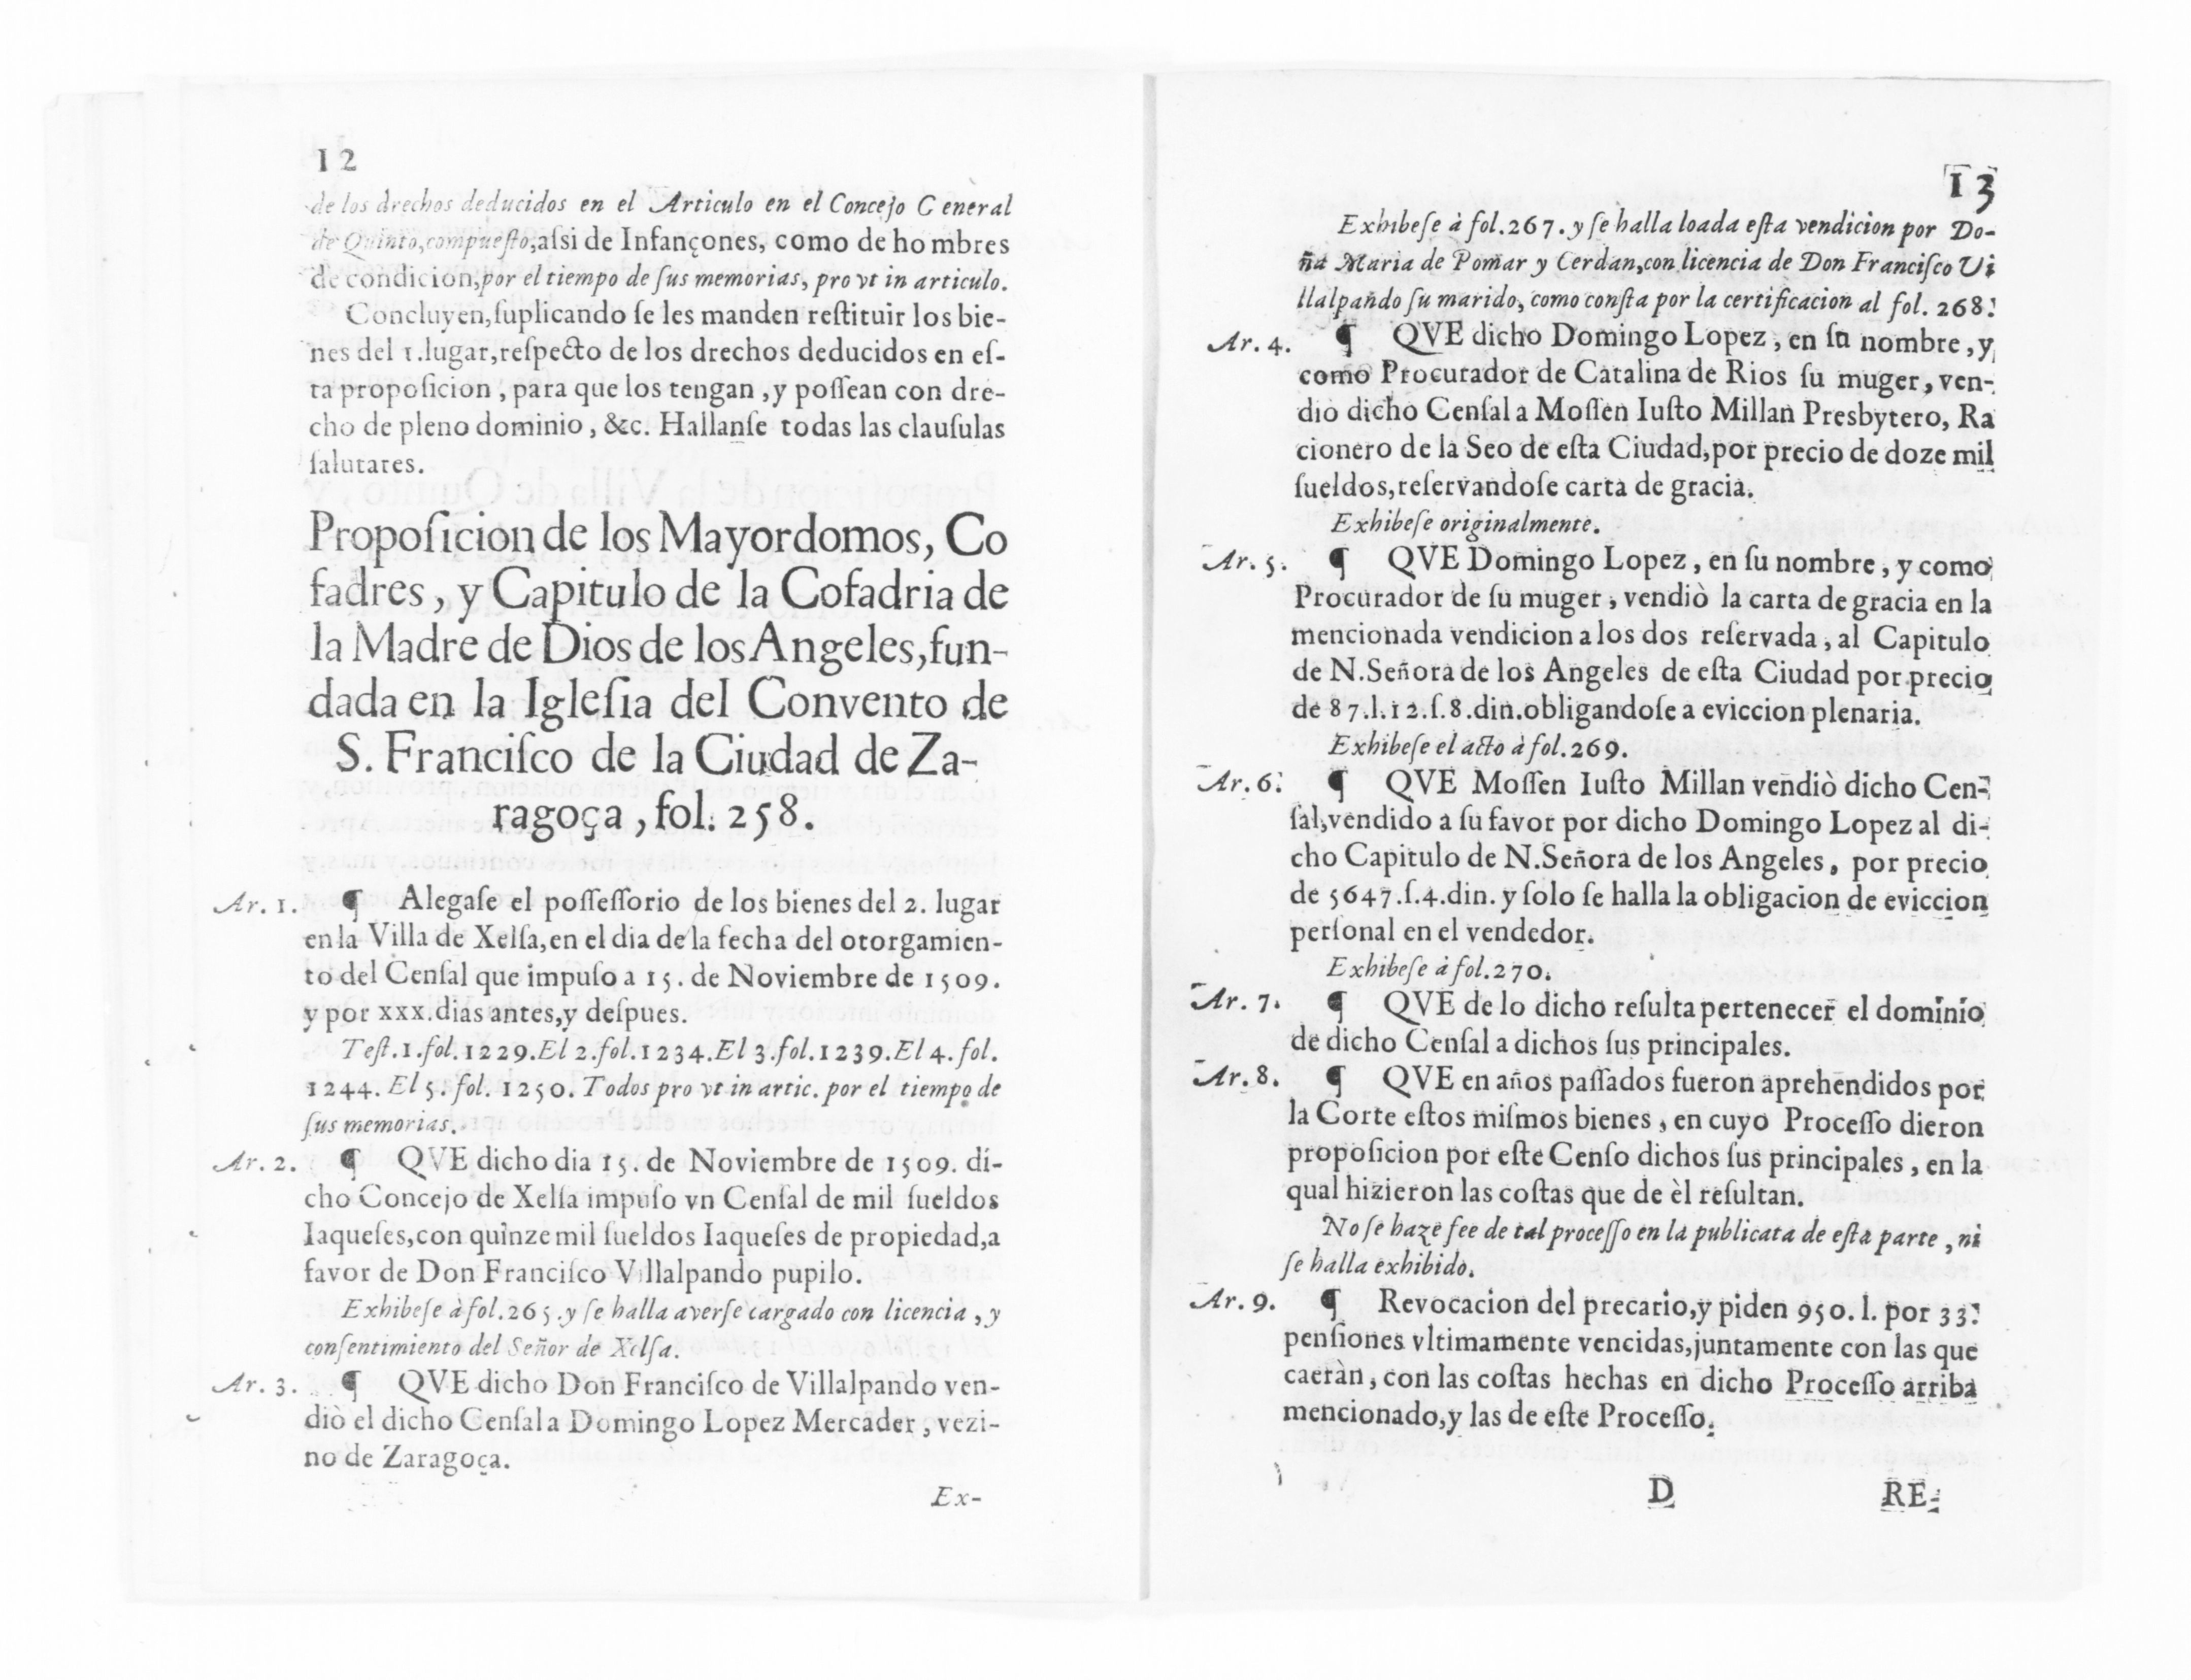 12
de los drechos deducidos en el Articulo en el Concejo General
de Quinto,compueſto,aſsi de Infançones, como de hombres
de condicion,por el tiempo de ſus memorias, pro vt in articulo.
Concluyen,ſuplicando ſe les manden reſtituir los bie-
nes del 1.lugar,reſpecto de los drechos deducidos en eſ-
ta propoſicion, para que los tengan, y poſſean con dre-
cho de pleno dominio, &c. Hallanſe todas las clauſulas
ſalutares.
Propoſicion de los Mayordomos, Co
fadres, y Capitulo de la Cofadria de
la Madre de Dios de los Angeles,fun-
dada en la Igleſia del Convento de
S. Franciſco de la Ciudad de Za-
ragoça, fol. 258.
Ar. 1. ¶ Alegaſe el poſſeſſorio de los bienes del 2. lugar
en la Villa de Xelſa,en el dia de la fecha del otorgamien-
to del Cenſal que impuſo a 15. de Noviembre de 1509.
y por xxx.dias antes,y deſpues.
Teſt.1.fol.1229.El 2.fol.1234.El 3.fol.1239.El 4.fol.
1244. El 5. fol. 1250. Todos pro vt in artic. por el tiempo de
ſus memorias.
Ar. 2. ¶ QVE dicho dia 15. de Noviembre de 1509. di-
cho Concejo de Xelſa impuſo vn Cenſal de mil ſueldos
Iaqueſes,con quinze mil ſueldos Iaqueſes de propiedad,a
favor de Don Franciſco Villalpando pupilo.
Exhibeſe à fol.265.y ſe halla averſe cargado con licencia, y
conſentimiento del Señor de Xelſa.
Ar. 3. ¶ QVE dicho Don Franciſco de Villalpando ven-
diò el dicho Cenſal a Domingo Lopez Mercader, vezi-
no de Zaragoça.
Ex-
13
Exhibeſe à fol.267.y ſe halla loada eſta vendicion por Do-
ña Maria de Pomar y Cerdan,con licencia de Don Franciſco Vi
llalpando ſu marido, como conſta por la certificacion al fol. 268.
Ar. 4. ¶ QVE dicho Domingo Lopez, en ſu nombre, y
como Procurador de Catalina de Rios ſu muger, ven-
dio dicho Cenſal a Moſſen Iuſto Millan Presbytero, Ra
cionero de la Seo de eſta Ciudad,por precio de doze mil
ſueldos,reſervandoſe carta de gracia.
Exhibeſe originalmente.
Ar. 5. ¶ QVE Domingo Lopez, en ſu nombre, y como
Procurador de ſu muger, vendiò la carta de gracia en la
mencionada vendicion a los dos reſervada, al Capitulo
de N.Señora de los Angeles de eſta Ciudad por precio
de 87.l.12.ſ.8.din.obligandoſe a eviccion plenaria.
Exhibeſe el acto à fol.269.
Ar. 6. ¶ QVE Moſſen Iuſto Millan vendiò dicho Cen-
ſal,vendido a ſu favor por dicho Domingo Lopez al di-
cho Capitulo de N.Señora de los Angeles, por precio
de 5647.ſ.4.din. y ſolo ſe halla la obligacion de eviccion
perſonal en el vendedor.
Exhibeſe à fol.270.
Ar. 7. ¶ QVE de lo dicho reſulta pertenecer el dominio
de dicho Cenſal a dichos ſus principales.
Ar. 8. ¶ QVE en años paſſados fueron aprehendidos por
la Corte eſtos miſmos bienes, en cuyo Proceſſo dieron
propoſicion por eſte Cenſo dichos ſus principales, en la
qual hizieron las coſtas que de èl reſultan.
No ſe haze fee de tal proceſſo en la publicata de eſta parte, ni
ſe halla exhibido.
Ar. 9. ¶ Revocacion del precario,y piden 950. l. por 33.
penſiones vltimamente vencidas,juntamente con las que
caeràn, con las coſtas hechas en dicho Proceſſo arriba
mencionado,y las de eſte Proceſſo.
D RE-